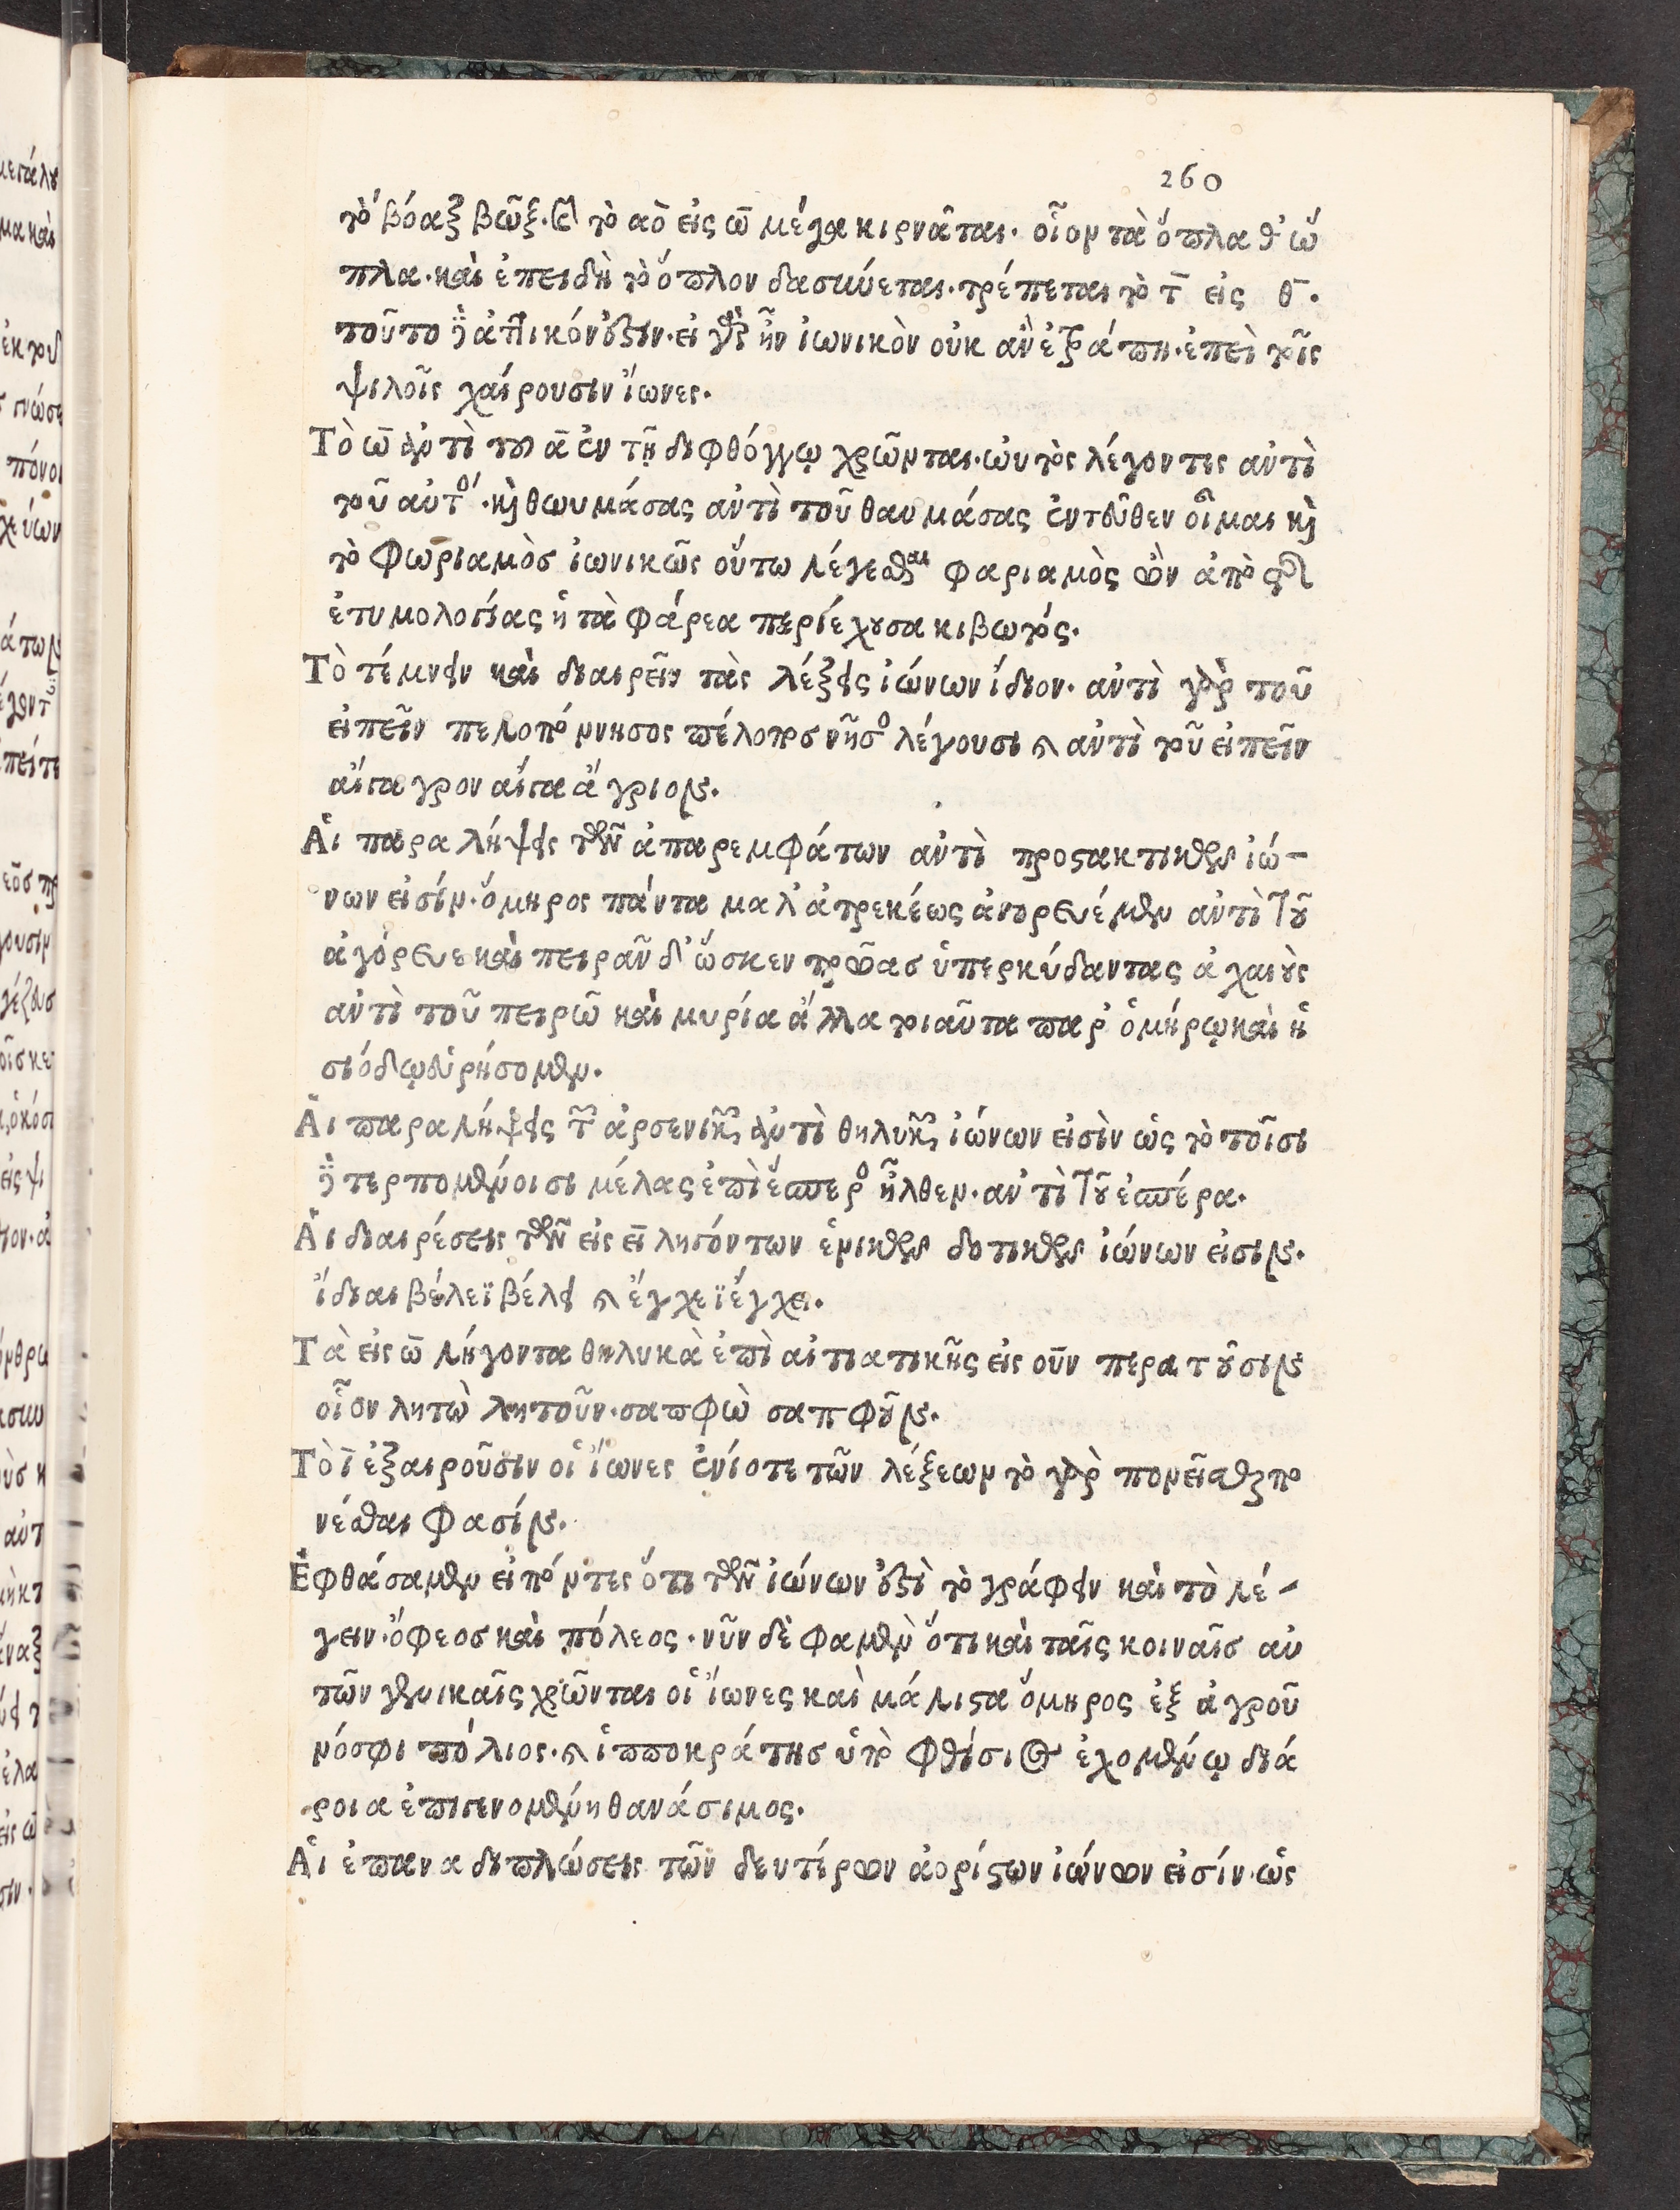 260
τὸ βόαξ βῶξ. καὶ τὸ αὸ εἰς ω̄ μέγα κιρνᾶται. οἷον τὰ ὅπλα θ' ὥ
πλα. καὶ ἐπειδὴ τὸ ὅπλον δασύνεται. τρέπεται τὸ τ̄ εἰς θ̄.
τοῦτο δὲ ἀττικόν ἐστιν. εἰ γὰρ ἦν ἰωνικὸν οὐκ ἂν ἐτράπη. ἐπεὶ τοῖς
ψιλοῖς χαίρουσιν ἴωνες.
Τὸ ω̄ ἀντὶ τοῦ ᾱ ἐν τῇ διφθόγγῳ χρῶνται. ὠυτὸς λέγοντες ἀντὶ
τοῦ αὐτός. καὶ θωυμάσας ἀντὶ τοῦ θαυμάσας ἐντεῦθεν οἶμαι καὶ
τὸ φωριαμὸσ ἰωνικῶς οὕτω λέγεσθαι φαριαμὸς ὢν ἀπὸ τῆς
ἐτυμολογίας ἡ τὰ φάρεα περιέχουσα κιβωτός.
Τὸ τέμνειν καὶ διαιρεῖν τὰς λέξεις ἰώνων ἴδιον. ἀντὶ γὰρ τοῦ
εἰπεῖν πελοπόννησος πέλοποσ νῆσος λέγουσι καὶ ἀντὶ τοῦ εἰπεῖν
αἴγαγρον αἴγα ἄγριον.
Ἁι παραλήψεις τῶν ἀπαρεμφάτων ἀντὶ προςακτικῶν ἰώ-
νων εἰσίν. ὅμηρος πάντα μαλ' ἀτρεκέως ἀγορευέμεν ἀντὶ τοῦ
ἀγόρευε καὶ πειρᾶν δ' ὥσκεν τρῶασ ὑπερκύδαντας ἀχαιοὺς
ἀντὶ τοῦ πειρῶ καὶ μυρία ἄλλα τοιαῦτα παρ' ὁμήρῳ καὶ ἡ
σιόδῳ εὑρήσομεν.
Ἁι παραλήψεις τῶν ἀρσενικῶν ἀντὶ θηλυκῶν ἰώνων εἰσὶν ὡς τὸ τοῖσι
δὲ τερπομένοισι μέλας ἐπὶ ἕσπερος ἦλθεν. ἀντὶ τοῦ ἑσπέρα.
Ἁι διαιρέσεις τῶν εἰς εῑ ληγόντων ἑνικῶν δοτικῶν ἰώνων εἰσιν.
ἴδιαι βέλεϊ βέλει καὶ ἔγχεϊ ἔγχει.
Τὰ εἰς ω̄ λήγοντα θηλυκὰ ἐπὶ αἰτιατικῆς εἰς οῦν περατοῦσιν
οἷον λητὼ λητοῦν. σαπφὼ σαπφοῦν.
Τὸ ῑ ἐξαιροῦσιν οἱ ἴωνες ἐνίοτε τῶν λέξεων τὸ γὰρ πονεῖσθαι πο
νέσθαι φασίν.
Ἐφθάσαμεν εἰπόντες ὅτι τῶν ἰώνων ἐστὶ τὸ γράφειν καὶ τὸ λέ-
γειν. ὄφεοσ καὶ πόλεος. νῦν δὲ φαμὲν ὅτι καὶ ταῖς κοιναῖσ αὐ
τῶν γενικαῖς χρῶνται οἱ ἴωνες καὶ μάλιςα ὅμηρος ἐξ ἀγροῦ
νόσφι πόλιος. καὶ ἱπποκράτησ ὑπὸ φθίσιος ἐχομένῳ διά
ροια ἐπιγενομένη θανάσιμος.
Ἁι ἐπαναδιπλώσεις τῶν δευτέρων ἀορίςων ἰώνων εἰσίν. ὡς